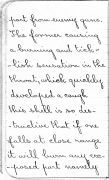 port from enemy guns.
The former causing
a burning and tick-
lish sensation in the
throat, which quickly
developed a cough
this shell is so des-
tructive that if one
falls at close range
it will burn any ex-
posed part namely